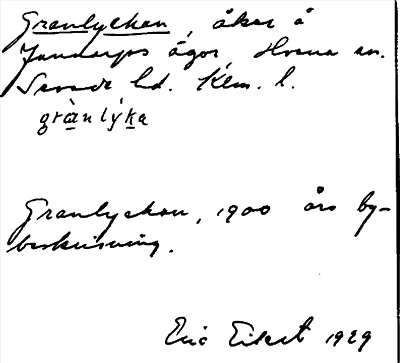 Granlyckan, åker å
Janstorps ägor, Hvena sn.
Sevede hd. Klm. l.
grànlýka
Granlyckan, 1900 års by-
beskrivning.
Eric Eiket 1929